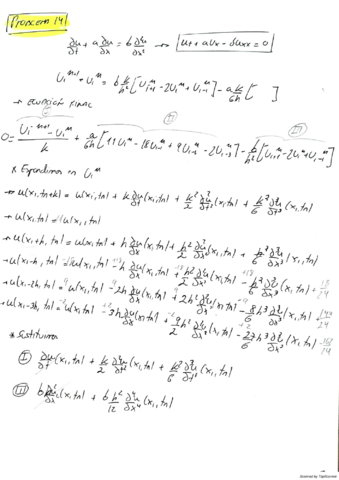 Problema 14
∂u/∂t + a ∂u/∂x = b ∂²u/∂x² → ut + aux - buxx = 0
Ui^n+1 = Ui^n + b k/h² [Ui+1^n - 2Ui^n + Ui-1^n] - a k/6h [ ]
→ ecuación final
I II III
0 = (Ui^n+1 - Ui^n)/k + a/6h [11Ui^n - 18Ui-1^n + 9Ui-2^n - 2Ui-3^n] - b/h² [Ui+1^n - 2Ui^n + Ui-1^n]
* Expandimos en Ui^n
→ u(xi, tn+k) = u(xi, tn) + k ∂u/∂t (xi, tn) + k²/2 ∂²u/∂t² (xi, tn) + k³/6 ∂³u/∂t³ (xi, tn)
→ u(xi, tn) = u(xi, tn)
→ u(xi+h, tn) = u(xi, tn) + h ∂u/∂x (xi, tn) + h²/2 ∂²u/∂x² (xi, tn) + h³/6 ∂³u/∂x³ (xi, tn)
→ u(xi-h, tn) = u(xi, tn) - h ∂u/∂x (xi, tn) + h²/2 ∂²u/∂x² (xi, tn) - h³/6 ∂³u/∂x³ (xi, tn) + 18/24
→ u(xi-2h, tn) = u(xi, tn) - 2h ∂u/∂x (xi, tn) + 2h² ∂²u/∂x² (xi, tn) - 8/6 h³ ∂³u/∂x³ (xi, tn)
→ u(xi-3h, tn) = u(xi, tn) - 3h ∂u/∂x (xi, tn) + 9/2 h² ∂²u/∂x² (xi, tn) - 27/6 h³ ∂³u/∂x³ (xi, tn)
* Sustituimos
I ∂u/∂t (xi, tn) + k/2 ∂²u/∂t² (xi, tn) + k²/6 ∂³u/∂t³ (xi, tn)
III b ∂²u/∂x² (xi, tn) + b h²/12 ∂⁴u/∂x⁴ (xi, tn)
Scanned by TapScanner